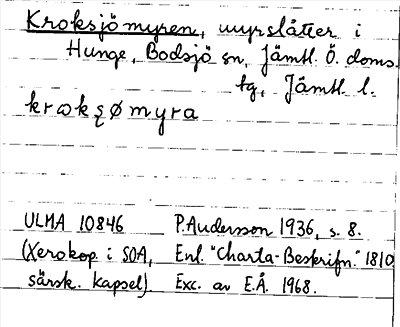 Kroksjömyren, myrslåtter i
Hunge, Bodsjö sn, Jämtl. Ö. doms.
tg, Jämtl. l.
krωksømyra
ULMA 10846 P. Andersson 1936, s. 8.
(Xerokop. i SOA, Enl. "Charta-Beskrifn." 1810
särsk. kapsel) Exc. av E.Å. 1968.